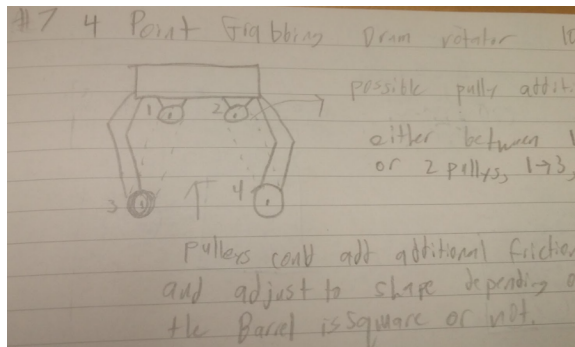 #7 4 Point Grabbing Drum rotator
possible pully additi
1 2
either between 1
or 2 pullys, 1→3,
3 4
pullers could add additional friction
and adjust to shape depending o
the Barrel is square or not.